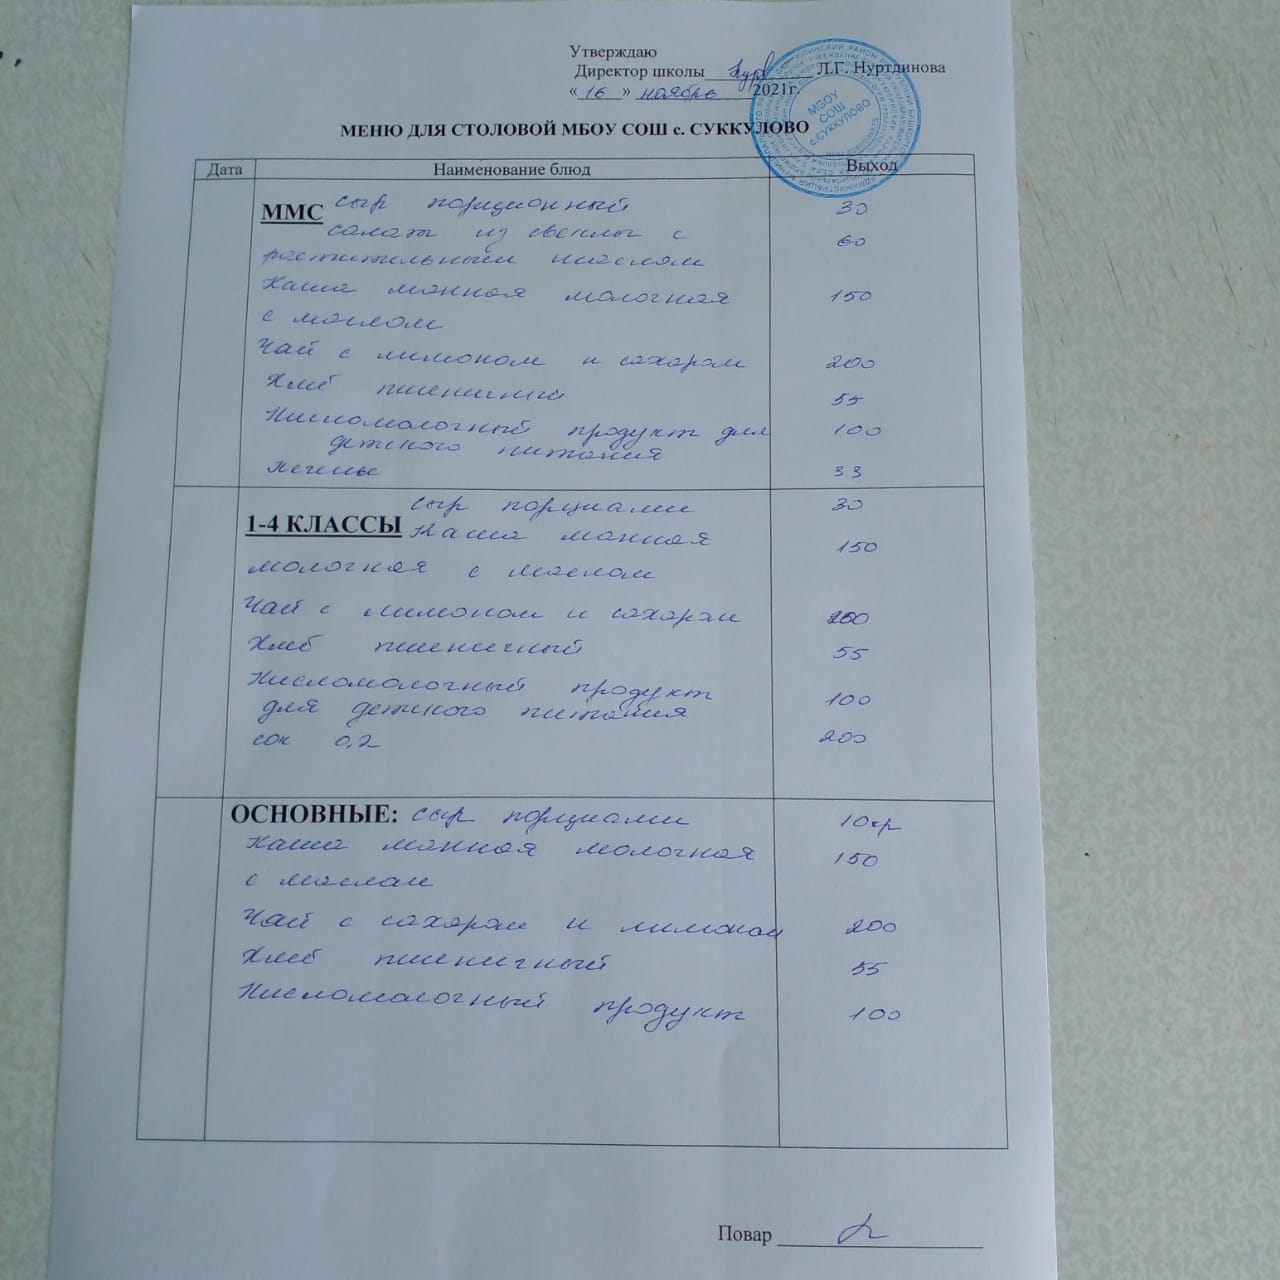 Утверждаю
Директор школы Л.Г. Нуртдинова
« 16 » ноября 2021г.
МБОУ
СОШ
с.СУККУЛОВО
МЕНЮ ДЛЯ СТОЛОВОЙ МБОУ СОШ с. СУККУЛОВО
Дата Наименование блюд Выход
ММС сыр порционный 30
салат из свеклы с 60
растительным маслом
Каша манная молочная 150
с маслом
Чай с лимоном и сахаром 200
Хлеб пшеничный 55
Кисломолочный продукт для 100
детского питания
Печенье 33
1-4 КЛАССЫ сыр порциями 30
Каша манная 150
молочная с маслом
Чай с лимоном и сахаром 200
Хлеб пшеничный 55
Кисломолочный продукт 100
для детского питания
сок 0,2 200
ОСНОВНЫЕ: сыр порциями 10гр
Каша манная молочная 150
с маслом
Чай с сахаром и лимоном 200
Хлеб пшеничный 55
Кисломолочный продукт 100
Повар